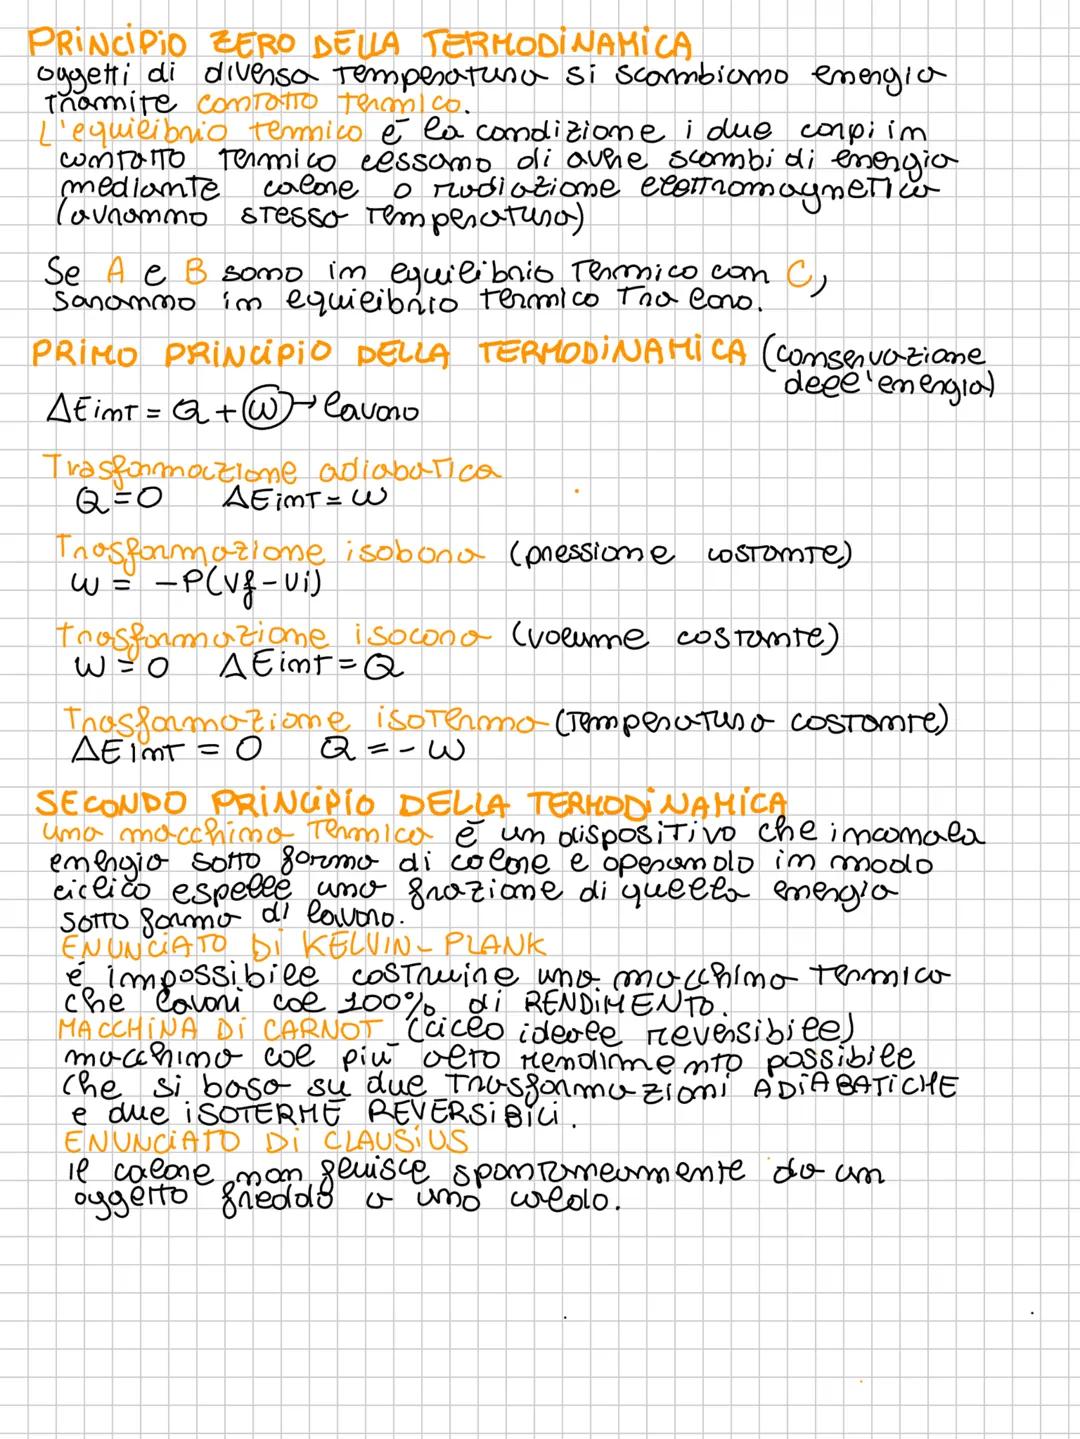 PRINCIPIO ZERO DELLA TERMODINAMICA
oggetti di diversa temperatura si scambiano energia
tramite contatto termico.
L'equilibrio termico é la condizione i due corpi in
contatto termico cessano di avere scambi di energia
mediante calore o radiazione elettromagnetica
(avranno stessa temperatura)
Se A e B sono in equilibrio termico con C,
saranno in equilibrio termico tra loro.
PRIMO PRINCIPIO DELLA TERMODINAMICA (conservazione
dell'energia)
ΔEint = Q + W → lavoro
Trasformazione adiabatica
Q = 0 ΔEint = W
Trasformazione isobara (pressione costante)
W = -P(Vf - Vi)
trasformazione isocora (volume costante)
W = 0 ΔEint = Q
Trasformazione isoterma (temperatura costante)
ΔEint = 0 Q = - W
SECONDO PRINCIPIO DELLA TERMODINAMICA
una macchina termica é un dispositivo che incamala
energia sotto forma di calore e operandolo in modo
ciclico espelle una frazione di quella energia
sotto forma di lavoro.
ENUNCIATO DI KELVIN - PLANK
é impossibile costruire una macchina termica
che lavori col 100% di RENDIMENTO.
MACCHINA DI CARNOT (ciclo ideale reversibile)
macchina col piú alto rendimento possibile
che si basa su due trasformazioni ADIABATICHE
e due ISOTERME REVERSIBILI.
ENUNCIATO DI CLAUSIUS
il calore non fluisce spontaneamente da un
oggetto freddo a uno caldo.